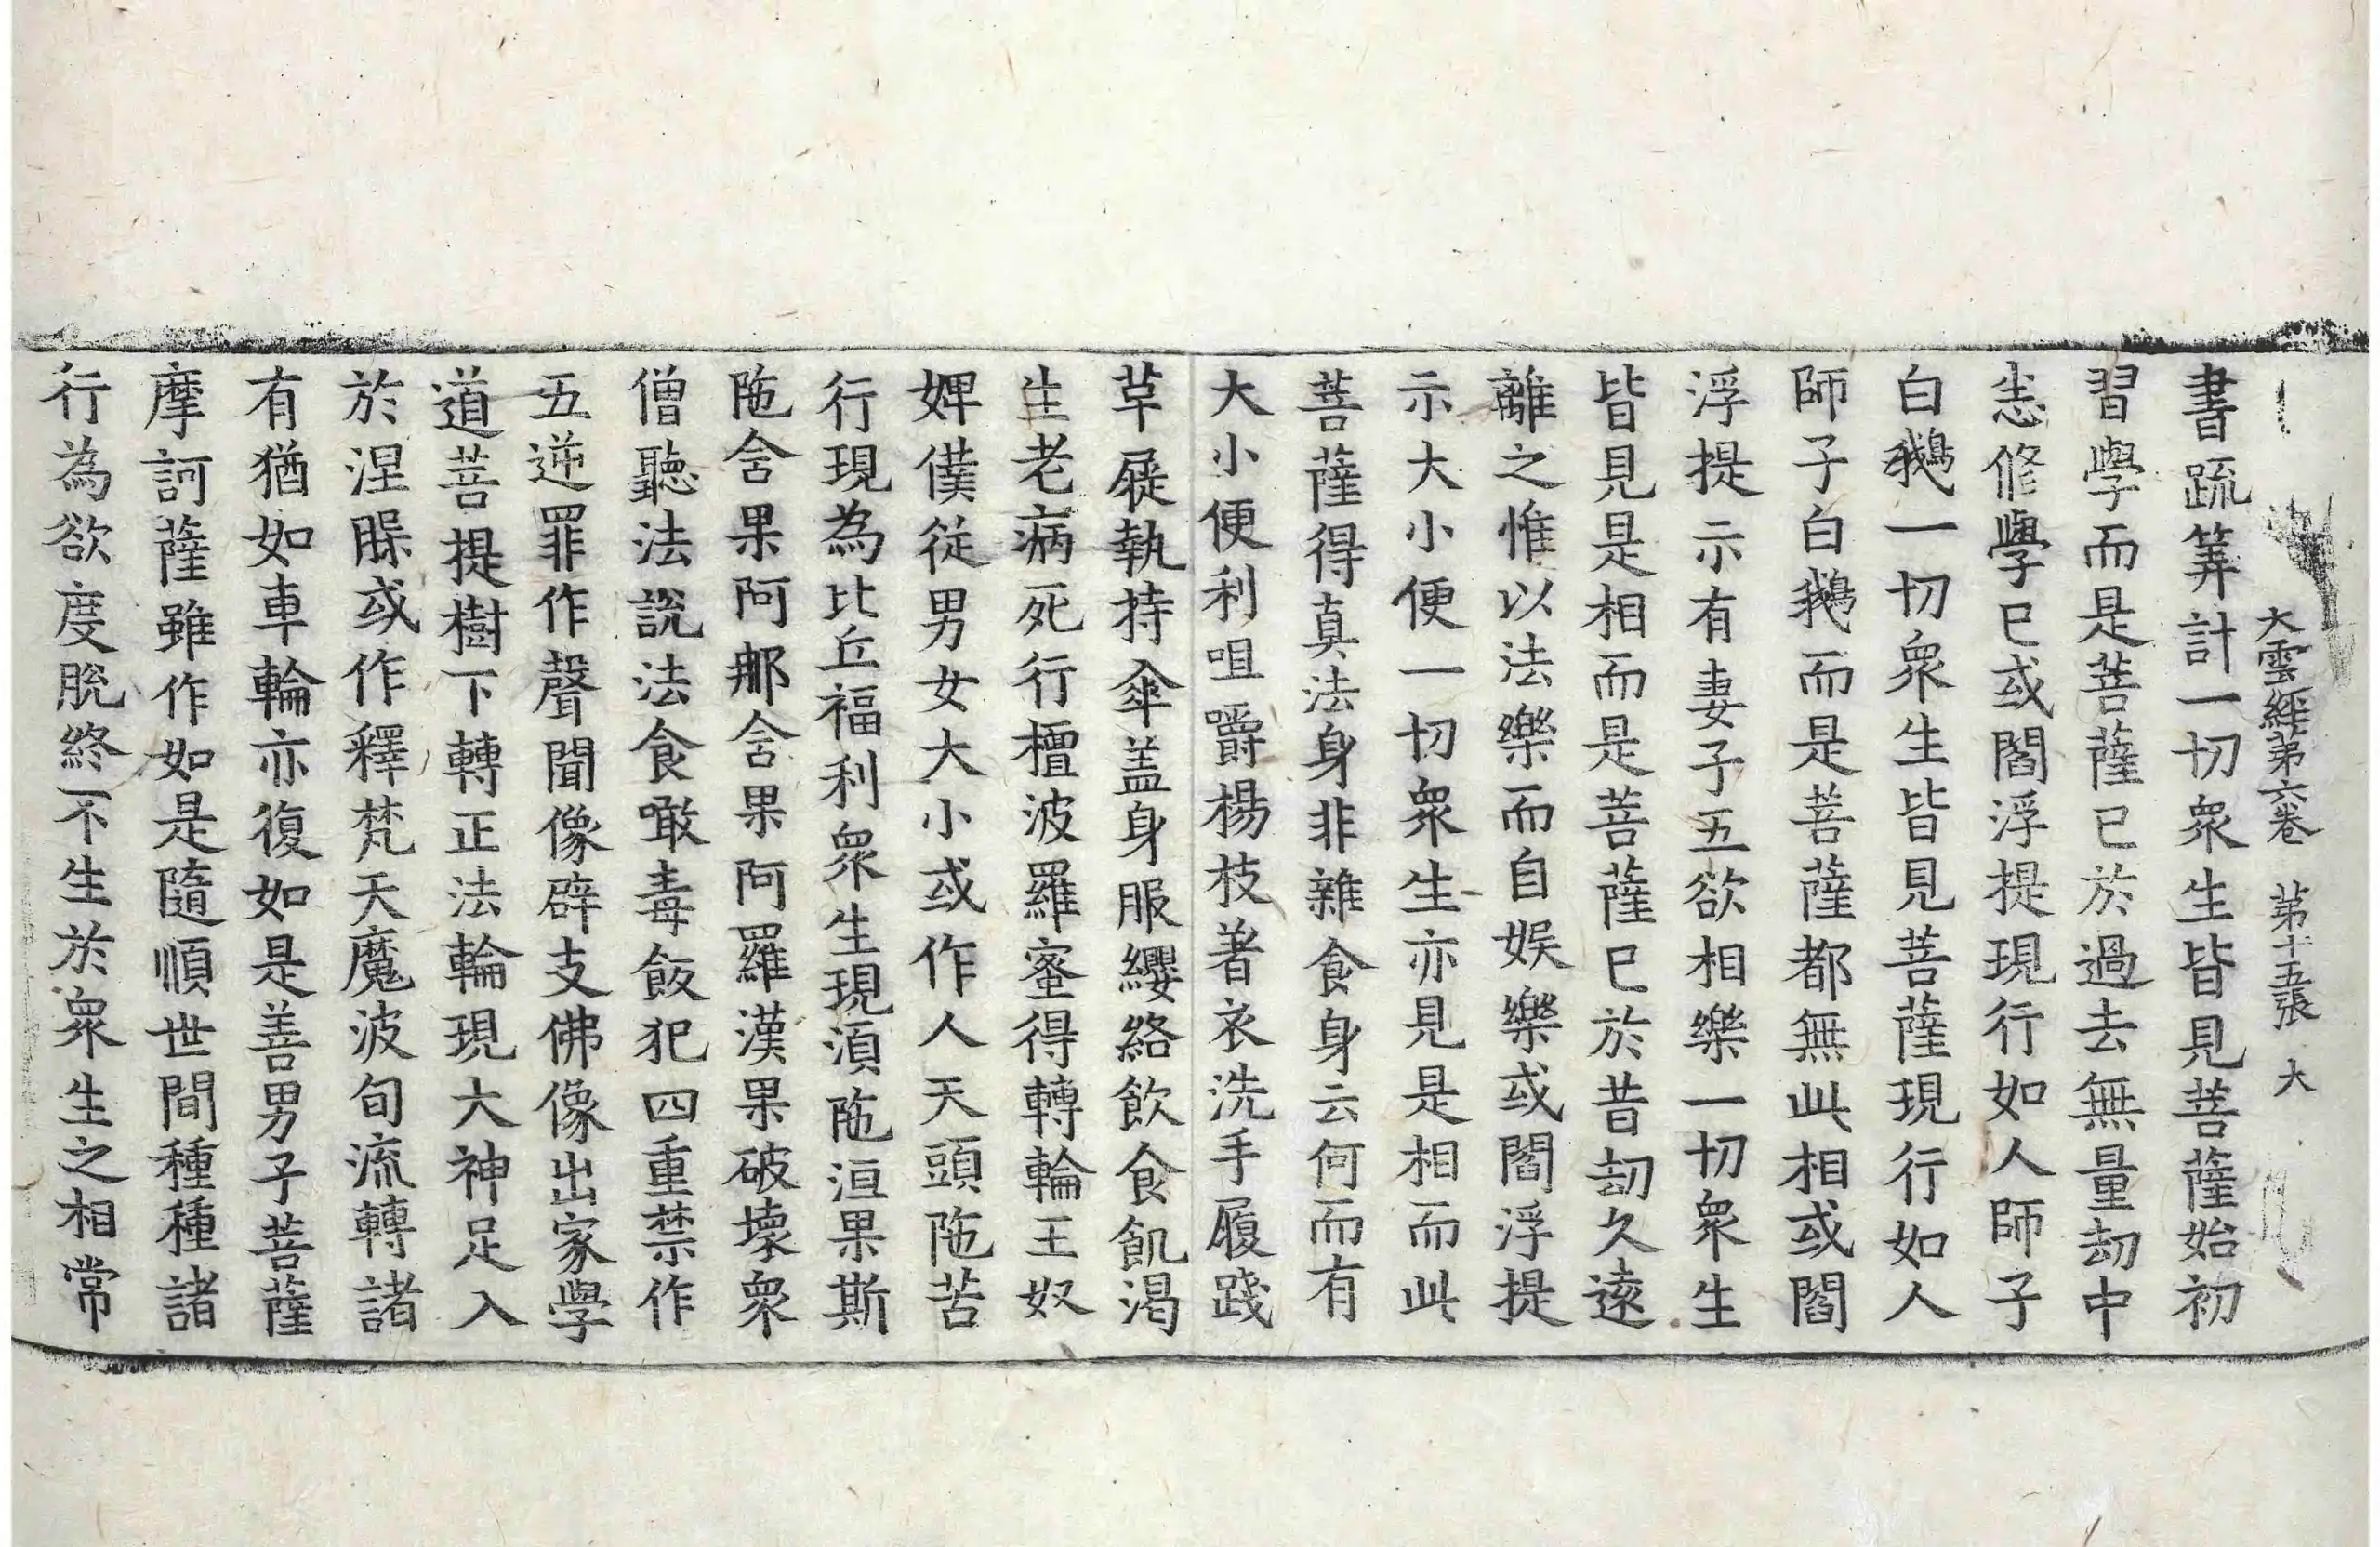 大雲經第六卷　第十五張　大
書疏筭計一切眾生皆見菩薩始初
習學而是菩薩已於過去無量劫中
悉修學已或閻浮提現行如人師子
白鵝一切眾生皆見菩薩現行如人
師子白鵝而是菩薩都無此相或閻
浮提示有妻子五欲相樂一切眾生
皆見是相而是菩薩已於昔劫久遠
離之惟以法樂而自娛樂或閻浮提
示大小便一切眾生亦見是相而此
菩薩得真法身非雜食身云何而有
大小便利咀嚼楊枝著衣洗手履踐
草屣執持傘蓋身服纓絡飲食飢渴
生老病死行檀波羅蜜得轉輪王奴
婢僕從男女大小或作人天頭陁苦
行現為比丘福利眾生現湏陁洹果斯
陁含果阿那含果阿羅漢果破壞眾
僧聽法說法食噉毒飯犯四重禁作
五逆罪作聲聞像辟支佛像出家學
道菩提樹下轉正法輪現大神足入
於涅槃或作釋梵天魔波旬流轉諸
有猶如車輪亦復如是善男子菩薩
摩訶薩雖作如是隨順世間種種諸
行為欲度脫終不生於眾生之相常